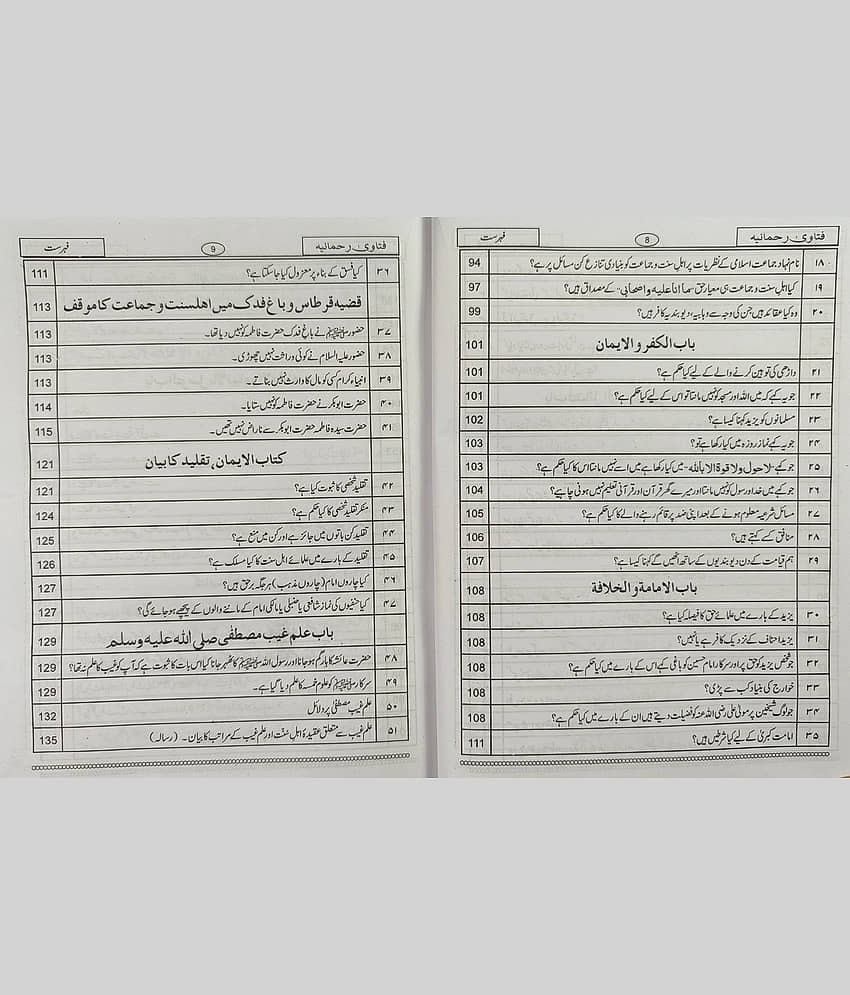 فتاویٰ رحمانیہ 8 فہرست
۱۸ نام نہاد جماعت اسلامی کے نظریات پر اہل سنت و جماعت کو بنیادی تنازع کن مسائل پر ہے؟ 94
۱۹ کیا اہل سنت و جماعت ہی معیار حق "ما انا علیہ واصحابی" کے مصداق ہیں؟ 97
۲۰ وہ کیا عقائد ہیں جن کی وجہ سے وہابیہ، دیوبندیہ کافر ہیں؟ 99
باب الکفر والایمان 101
۲۱ داڑھی کی توہین کرنے والے کے لیے کیا حکم ہے؟ 101
۲۲ جو یہ کہے کہ میں اللہ اور مسجد کو نہیں مانتا تو اس کے لیے کیا حکم ہے؟ 101
۲۳ مسلمانوں کو یزید کہنا کیسا ہے؟ 102
۲۴ جو یہ کہے نماز روزہ میں کیا رکھا ہے تو؟ 103
۲۵ جو کہے "لاحول ولا قوۃ الا باللہ" میں کیا رکھا ہے میں اسے نہیں مانتا اس کا کیا حکم ہے؟ 103
۲۶ جو کہے میں خدا و رسول کو نہیں مانتا اور میرے گھر قرآن اور قرآنی تعلیم نہیں ہونی چاہیے؟ 104
۲۷ مسائل شرعیہ معلوم ہونے کے بعد اپنی ضد پر قائم رہنے والے کا کیا حکم ہے؟ 105
۲۸ منافق کسے کہتے ہیں؟ 106
۲۹ ہم قیامت کے دن دیوبندیوں کے ساتھ اٹھیں گے کہنا کیسا ہے؟ 107
باب الامامۃ والخلافۃ 108
۳۰ یزید کے بارے میں علمائے حق کا فیصلہ کیا ہے؟ 108
۳۱ یزید احناف کے نزدیک کافر ہے یا نہیں؟ 108
۳۲ جو شخص یزید کو حق پر اور سرکار امام حسین کو باغی کہے اس کے بارے میں کیا حکم ہے؟ 108
۳۳ خوارج کی بنیاد کب سے پڑی؟ 108
۳۴ جو لوگ شیخین پر مولیٰ علی رضی اللہ عنہ کو فضیلت دیتے ہیں ان کے بارے میں کیا حکم ہے؟ 108
۳۵ امامت کبریٰ کے لیے کیا شرطیں ہیں؟ 111
فتاویٰ رحمانیہ 9 فہرست
۳۶ کیا فسق کے بناء پر معزول کیا جا سکتا ہے؟ 111
قضیہ قرطاس و باغ فدک میں اهلسنت و جماعت کا موقف 113
۳۷ حضور ﷺ نے باغ فدک حضرت فاطمہ کو نہیں دیا تھا۔ 113
۳۸ حضور علیہ السلام نے کوئی وراثت نہیں چھوڑی۔ 113
۳۹ انبیاء کرام کسی کو مال کا وارث نہیں بناتے۔ 113
۴۰ حضرت ابوبکر نے حضرت فاطمہ کو نہیں ستایا۔ 114
۴۱ حضرت سیدہ فاطمہ حضرت ابوبکر سے ناراض نہیں تھیں۔ 115
کتاب الایمان، تقلید کا بیان 121
۴۲ تقلید شخصی کا ثبوت کیا ہے؟ 121
۴۳ منکر تقلید شخصی کا کیا حکم ہے؟ 124
۴۴ تقلید کن باتوں میں جائز ہے اور کن میں منع ہے؟ 125
۴۵ تقلید کے بارے میں علمائے اہل سنت کا کیا مسلک ہے؟ 126
۴۶ کیا چاروں امام (چاروں مذہب) ہر جگہ برحق ہیں؟ 127
۴۷ کیا حنفیوں کی نماز شافعی یا حنبلی یا مالکی امام کے ماننے والوں کے پیچھے ہو جائے گی؟ 127
باب علم غیب مصطفٰی صلی اللہ علیہ وسلم 129
۴۸ حضرت عائشہ کا ہار گم ہو جانا اور رسول اللہ ﷺ کا ٹھہر جانا کیا اس بات کا ثبوت ہے کہ آپ کو غیب کا علم نہ تھا؟ 129
۴۹ سرکار ﷺ کو علوم خمسہ کا علم دیا گیا ہے۔ 129
۵۰ علم غیب مصطفیٰ پر دلائل 132
۵۱ علم غیب سے متعلق عقیدۂ اہل سنت اور علم غیب کے مراتب کا بیان۔ (رسالہ) 135